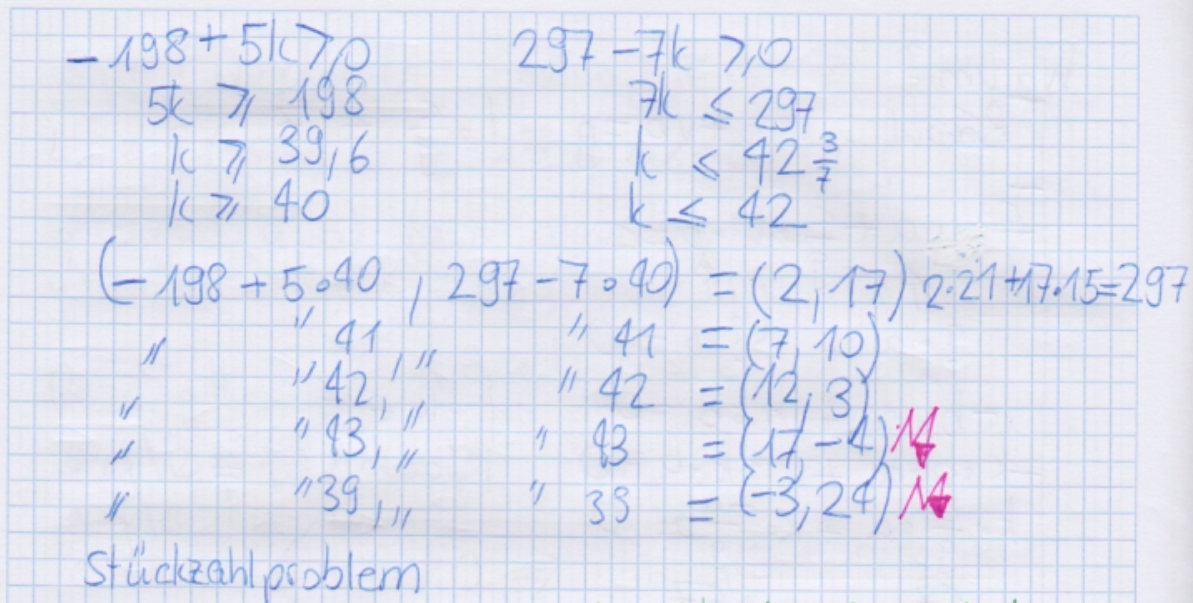 -198+5k ⩾ 0 297-7k ⩾ 0
5k ⩾ 198 7k ≤ 297
k ⩾ 39,6 k ≤ 42 3/7
k ⩾ 40 k ≤ 42
(-198+5•40, 297-7•40) = (2,17) 2·21+17·15=297
" " 41, " " 41 = (7,10)
" " 42, " " 42 = (12,3)
" " 43, " " 43 = (17,-4)
" " 39, " " 39 = (-3,24)
Stückzahlproblem